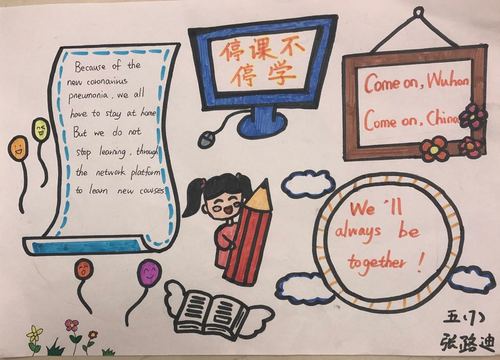 Because of the
new coronavirus
pneumonia, we all
have to stay at home
But we do not
stop learning, through
the network platform
to learn new courses
停课不
停学
Come on, Wuhan
Come on, China
We'll
always be
together!
五(7)
张路迪